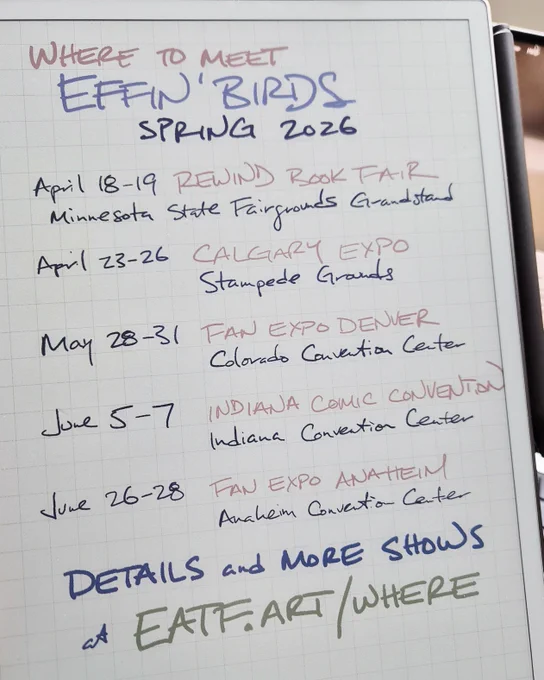 WHERE TO MEET
EFFIN' BIRDS
SPRING 2026
April 18-19 REWIND BOOK FAIR
Minnesota State Fairgrounds Grandstand
April 23-26 CALGARY EXPO
Stampede Grounds
May 28-31 FAN EXPO DENVER
Colorado Convention Center
June 5-7 INDIANA COMIC CONVENTION
Indiana Convention Center
June 26-28 FAN EXPO ANAHEIM
Anaheim Convention Center
DETAILS and MORE SHOWS
at EATF.ART/WHERE